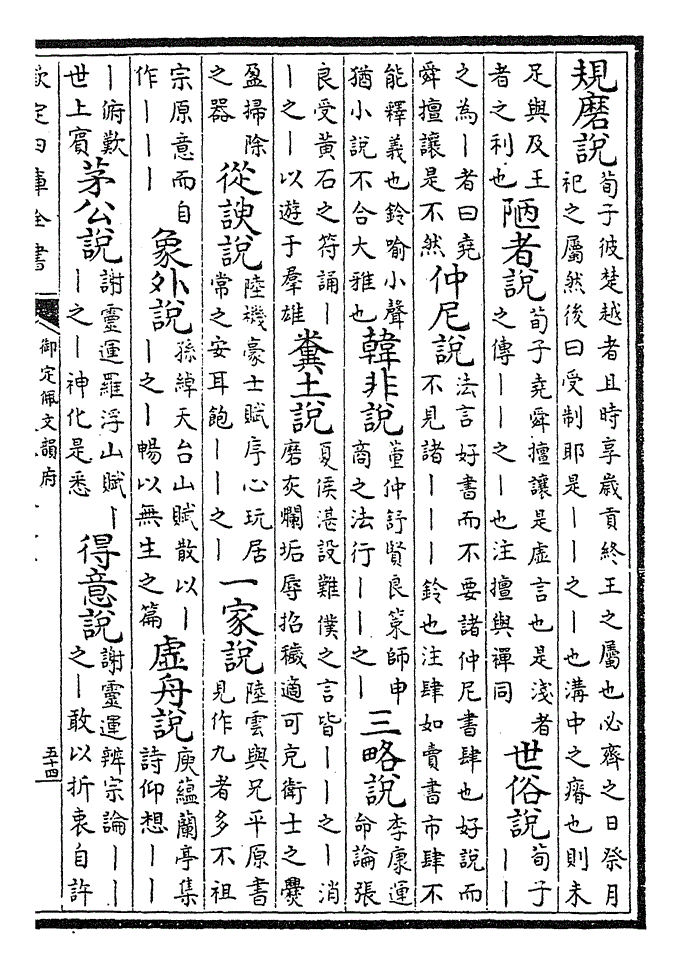 規磨說 荀子彼楚越者且時享歲貢終王之屬也必齊之日祭月
祀之屬然後曰受制耶是｜｜之｜也溝中之瘠也則未
足與及王
者之利也
陋者說 荀子堯舜擅讓是虛言也是淺者
之傳｜｜之｜也注擅與禪同
世俗說 荀子
｜｜
之為｜者曰堯
舜擅讓是不然
仲尼說 法言好書而不要諸仲尼書肆也好說而
不見諸｜｜｜鈴也注肆如賣書市肆不
能釋義也鈴喻小聲
猶小說不合大雅也
韓非說 董仲舒賢良策師申
商之法行｜｜之｜
三略說 李康運
命論張
良受黃石之符誦｜
｜之｜以遊于羣雄
糞土說 夏侯湛設難僕之言皆｜｜之｜消
磨灰爛垢辱招穢適可充衛士之爨
盈掃除
之器
從諛說 陸機豪士賦序心玩居
常之安耳飽｜｜之｜
一家說 陸雲與兄平原書
見作九者多不祖
宗原意而自
作｜｜｜
象外說 孫綽天台山賦散以｜
｜之｜暢以無生之篇
虛舟說 庾蘊蘭亭集
詩仰想｜｜
｜俯歎
世上賓
茅公說 謝靈運羅浮山賦｜
｜之｜神化是悉
得意說 謝靈運辨宗論｜｜
之｜敢以折衷自許
欽定四庫全書
御定佩文韻府
五十四